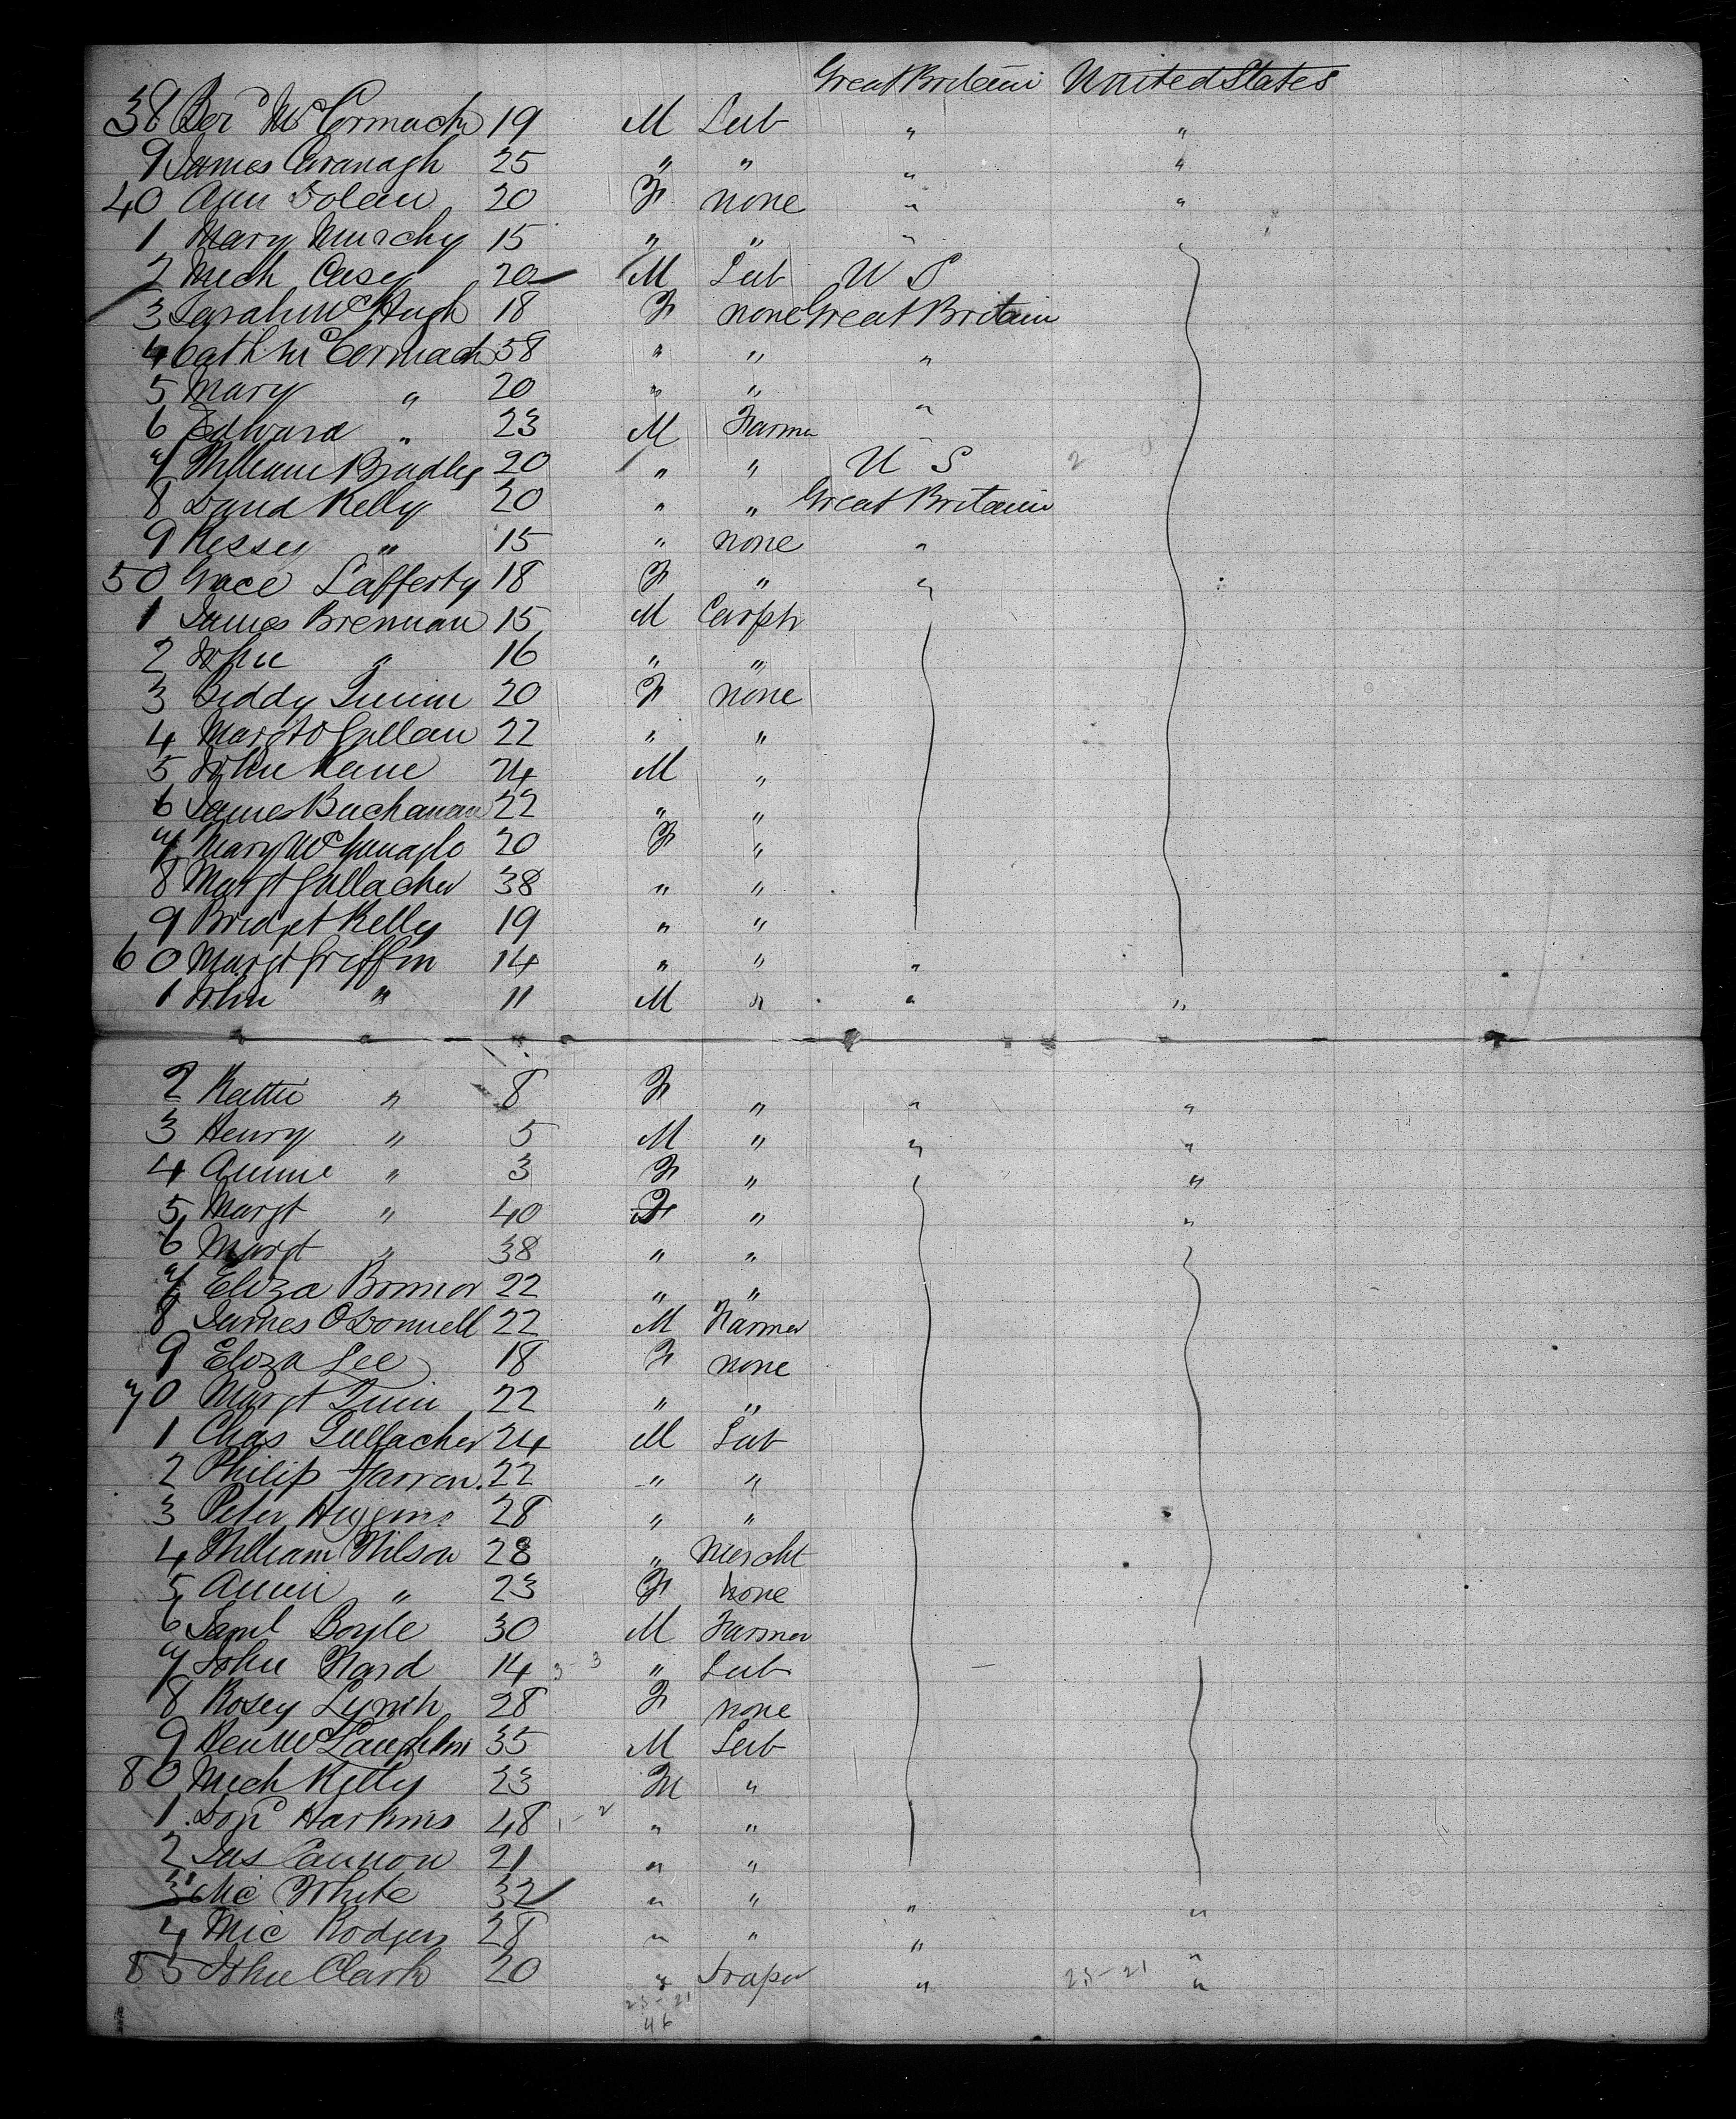 Great Britain United States
38 Ber^d McCormack 19 M Lab " "
9 James Cavanagh 25 " " " "
40 Ann Dolan 20 F none " "
1 Mary Murchy 15 " " "
2 Mich Casey 20 M Lab U S
3 Sarah McHugh 18 F none Great Britain
4 Cath McCormack 58 " " "
5 Mary " 20 " " "
6 Edward " 23 M Farmer
7 William Bradley 20 " " U S
8 David Kelly 20 " " Great Britain
9 Kessey " 15 " none "
50 Grace Lafferty 18 F " "
1 James Brennan 15 M Carptr
2 John " 16 " "
3 Biddy Quinn 20 F none
4 Margt 22 " "
5 John Kane 24 M "
6 James Buchanan 22 " "
7 Mary 20 F "
8 Margt Gallacher 38 " "
9 Bridget Kelly 19 " "
60 Margt Griffin 14 " " "
1 John " 11 M " " "
2 Kattie " 8 F " " "
3 Henry " 5 M " " "
4 Annie " 3 F " "
5 Margt " 40 F " "
6 Margt " 38 " "
7 Eliza Bonnor 22 " "
8 James O'Donnell 22 M Farmer
9 Eliza Lee 18 F none
70 Margt Quin 22 " "
1 Chas Gallacher 24 M Lab
2 Philip Farron 22 " "
3 Peter Higgins 28 " "
4 William Wilson 28 " Mercht
5 Annie " 23 F none
6 Saml Boyle 30 M Farmer
7 John Ward 14 " Lab
8 Rosey Lynch 28 F none
9 Hen McLaughlin 35 M Lab
80 Mich Kelly 23 M "
1 Harkins 48 " "
2 Jas Cannon 21 " "
3 Mic White 32 " " " "
4 Mic Rodgers 28 " " " "
85 John Clark 20 " Draper " 25-21 "
25-21
46